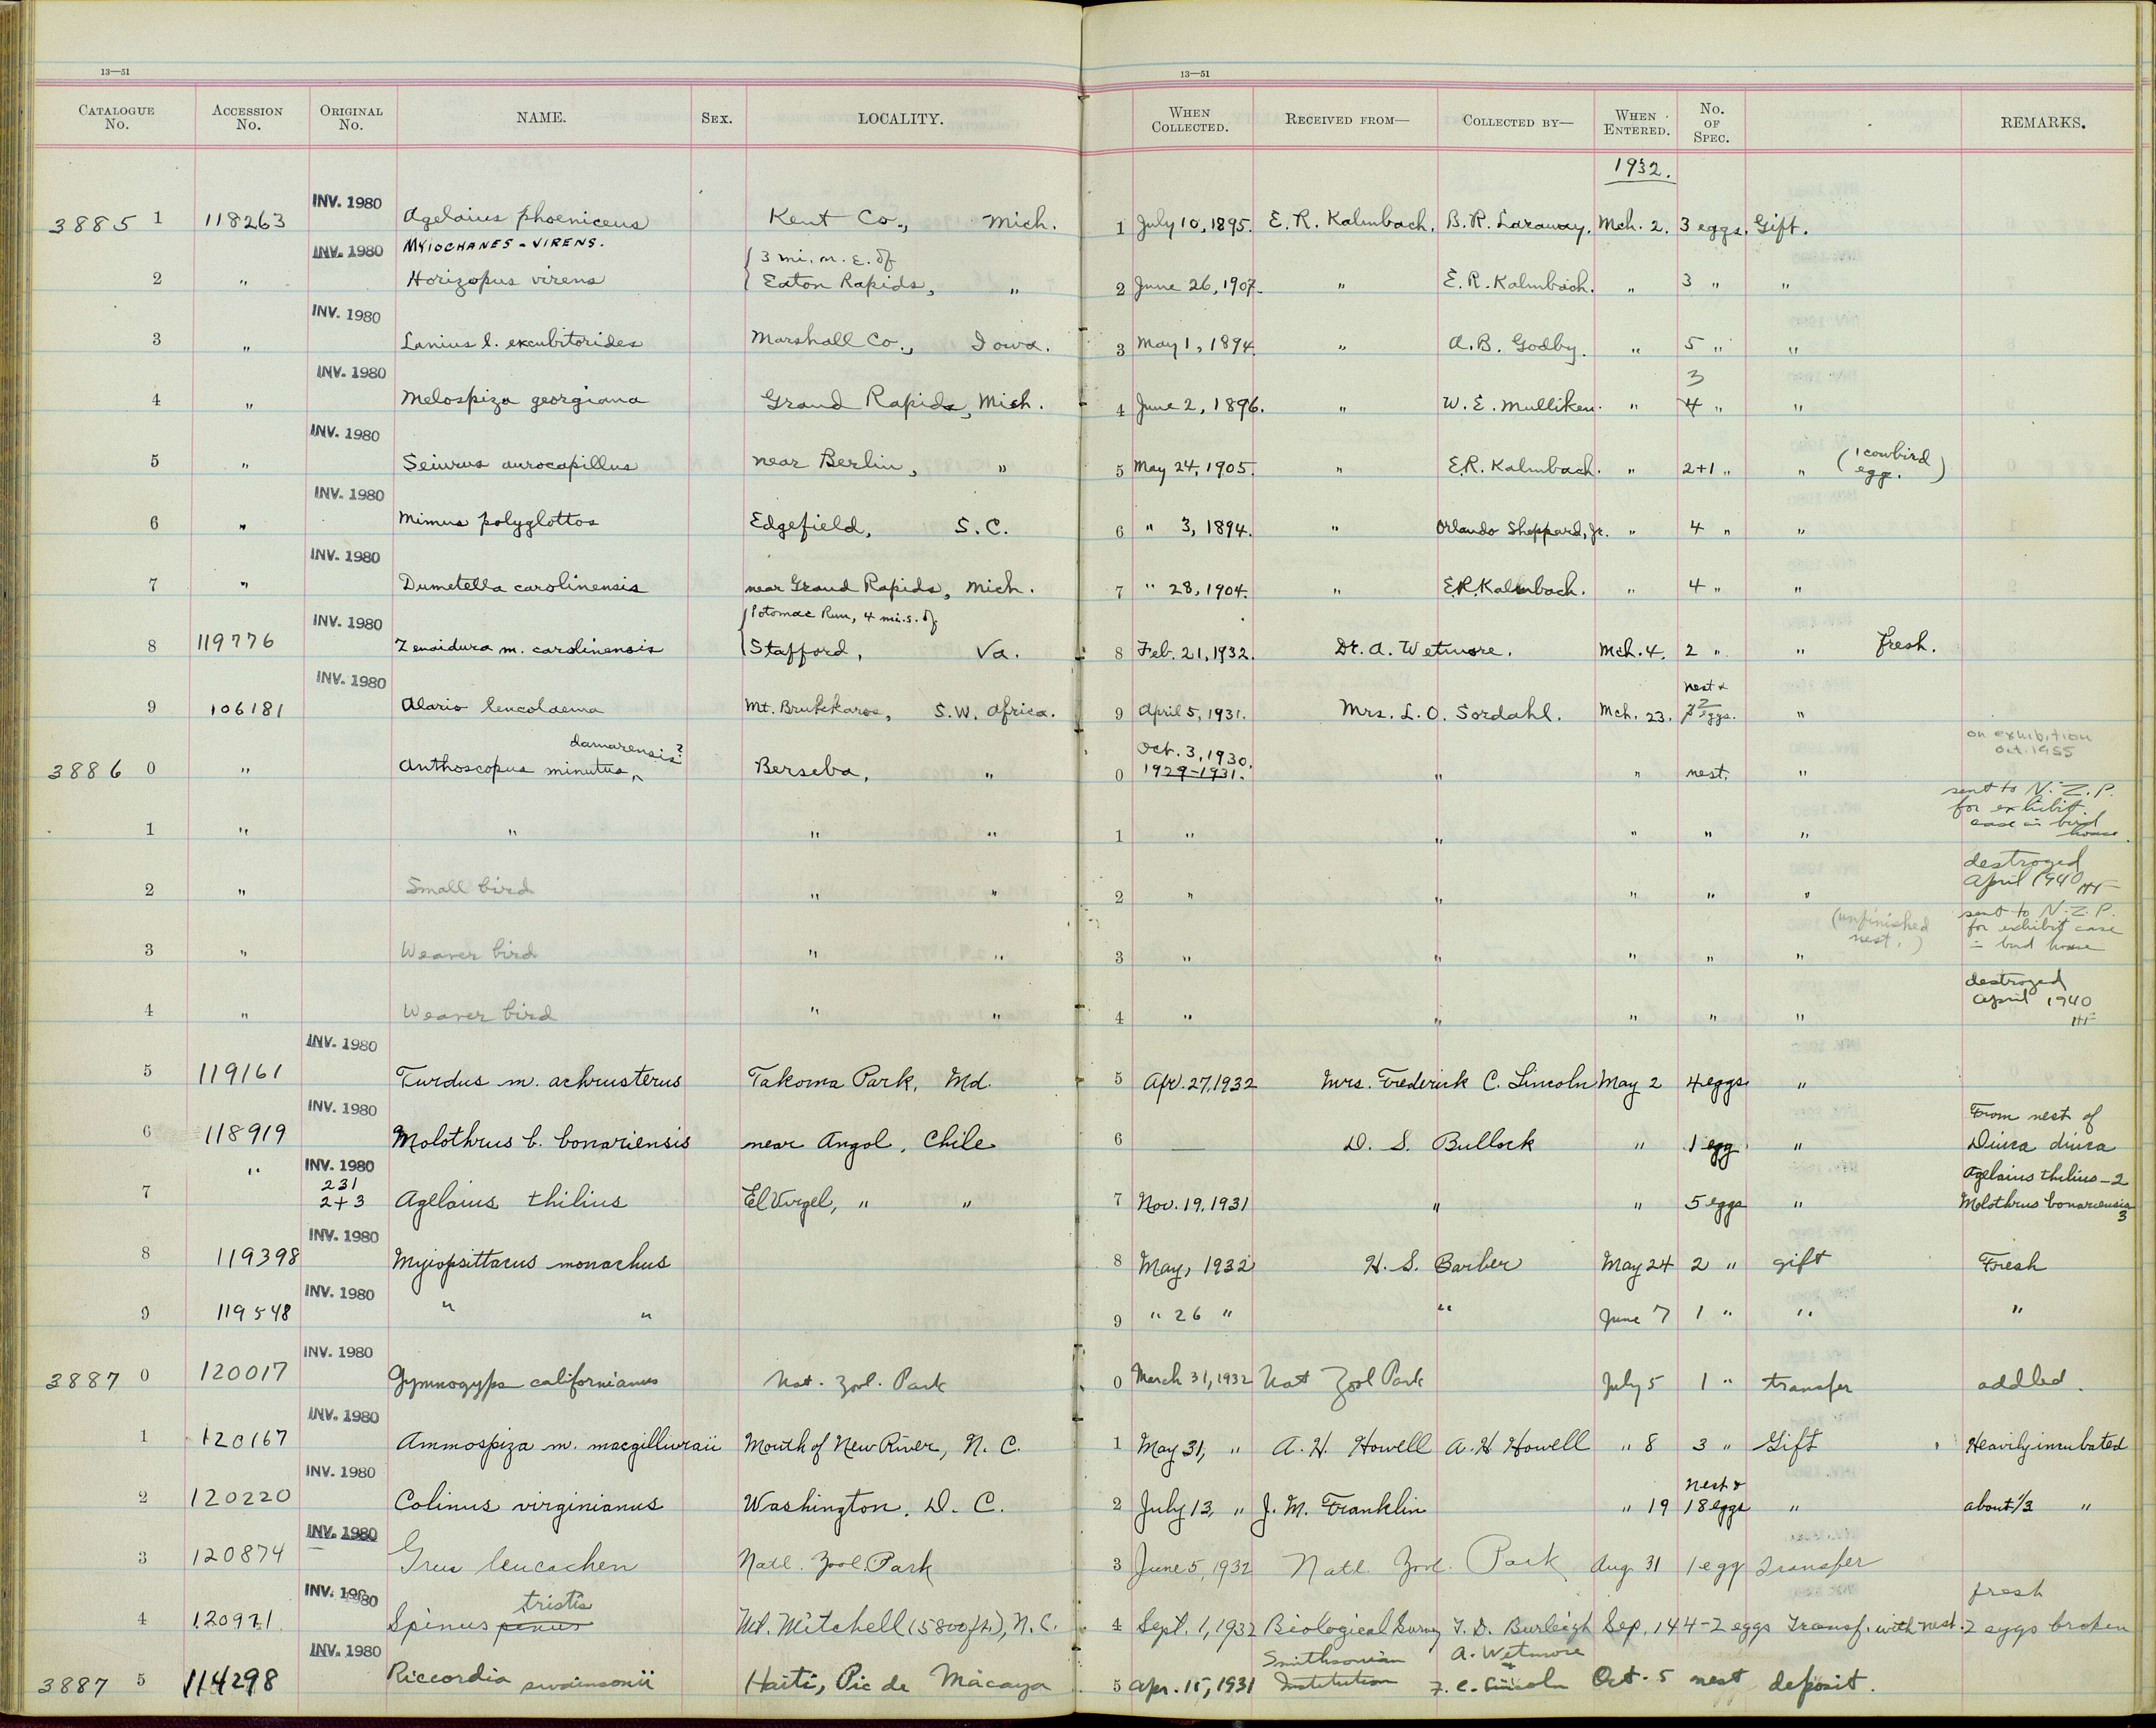 13—51
13—51
CATALOGUE No. ACCESSION No. ORIGINAL No. NAME. SEX. LOCALITY. WHEN COLLECTED. RECEIVED FROM— COLLECTED BY— WHEN ENTERED. No. OF SPEC. REMARKS.
1932.
INV. 1980
38851 118263 Agelaius phoeniceus Kent Co., Mich. 1 July 10, 1895. E. R. Kalmbach. B. R. Laraway. Mch. 2. 3 eggs. Gift.
INV. 1980 MYIOCHANES - VIRENS. 3 mi. n. E. of
2 " Horizopus virens Eaton Rapids, " 2 June 26, 1907. " E. R. Kalmbach. " 3 " "
INV. 1980
3 " Lanius l. excubitorides Marshall Co., Iowa. 3 May 1, 1894. " A. B. Godby. " 5 " "
INV. 1980 3
4 " Melospiza georgiana Grand Rapids, Mich. 4 June 2, 1896. " W. E. Mulliken. " 4 " "
INV. 1980
5 " Seiurus aurocapillus near Berlin, " 5 May 24, 1905. " E. R. Kalmbach. " 2+1 " " (1 cowbird egg.)
INV. 1980
6 " Mimus polyglottos Edgefield, S. C. 6 " 3, 1894. " Orlando Sheppard, Jr. " 4 " "
INV. 1980
7 " Dumetella carolinensis near Grand Rapids, Mich. 7 " 28, 1904. " E. R. Kalmbach. " 4 " "
INV. 1980 Potomac Run, 4 mi. s. of
8 119776 Zenaidura m. carolinensis Stafford, Va. 8 Feb. 21, 1932. Dr. A. Wetmore. Mch. 4. 2 " " fresh.
INV. 1980 nest &
9 106181 Alario leucolaema Mt. Brukkaros, S. W. Africa. 9 April 5, 1931. Mrs. L. O. Sordahl. Mch. 23. 2 eggs. "
damarensis? Oct. 3, 1930. on exhibition Oct. 1955
38860 " Anthoscopus minutus ^ Berseba, " 0 1929-1931. " " nest. "
sent to N. Z. P. for exhibit case in bird house.
1 " " " " 1 " " " " "
destroyed April 1940 HF
2 " Small bird " " 2 " " " " "
(unfinished nest.) sent to N. Z. P. for exhibit case in bird house
3 " Weaver bird " " 3 " " " " "
destroyed April 1940 HF
4 " Weaver bird " " 4 " " " " "
INV. 1980
5 119161 Turdus m. achrusterus Takoma Park, Md. 5 Apr. 27, 1932 Mrs. Frederick C. Lincoln May 2 4 eggs "
INV. 1980 From nest of
6 118919 Molothrus b. bonariensis near Angol, Chile 6 — D. S. Bullock " 1 egg " Diuca diuca
" INV. 1980
231 Agelaius thilius - 2
7 2+3 Agelaius thilius El Vergel, " " 7 Nov. 19, 1931 " " 5 eggs " Molothrus bonariensis 3
INV. 1980
8 119398 Myiopsittacus monachus 8 May, 1932 H. S. Barber May 24 2 " gift Fresh
INV. 1980
9 119548 " " 9 " 26 " " June 7 1 " " "
INV. 1980
38870 120017 Gymnogyps californianus Nat. Zool. Park 0 March 31, 1932 Nat Zool Park July 5 1 " transfer addled.
INV. 1980
1 120167 Ammospiza m. macgillivraii Mouth of New River, N. C. 1 May 31, " A. H. Howell A. H. Howell " 8 3 " Gift Heavily incubated
INV. 1980 Nest &
2 120220 Colinus virginianus Washington, D. C. 2 July 13, " J. M. Franklin " 19 18 eggs " about 1/3 "
INV. 1980
3 120874 Grus leucachen Natl. Zool. Park 3 June 5, 1932 Natl. Zool. Park Aug. 31 1 egg Transfer
INV. 1980 tristis fresh
4 120971 Spinus pinus Mt. Mitchell (5800 ft.), N. C. 4 Sept. 1, 1932 Biological Survey T. D. Burleigh Sep. 14 4-2 eggs Transf. with nest. 2 eggs broken
INV. 1980 Smithsonian A. Wetmore &
38875 114298 Riccordia swainsonii Haiti, Pic de Macaya 5 Apr. 15, 1931 Institution F. C. Lincoln Oct. 5 nest deposit.